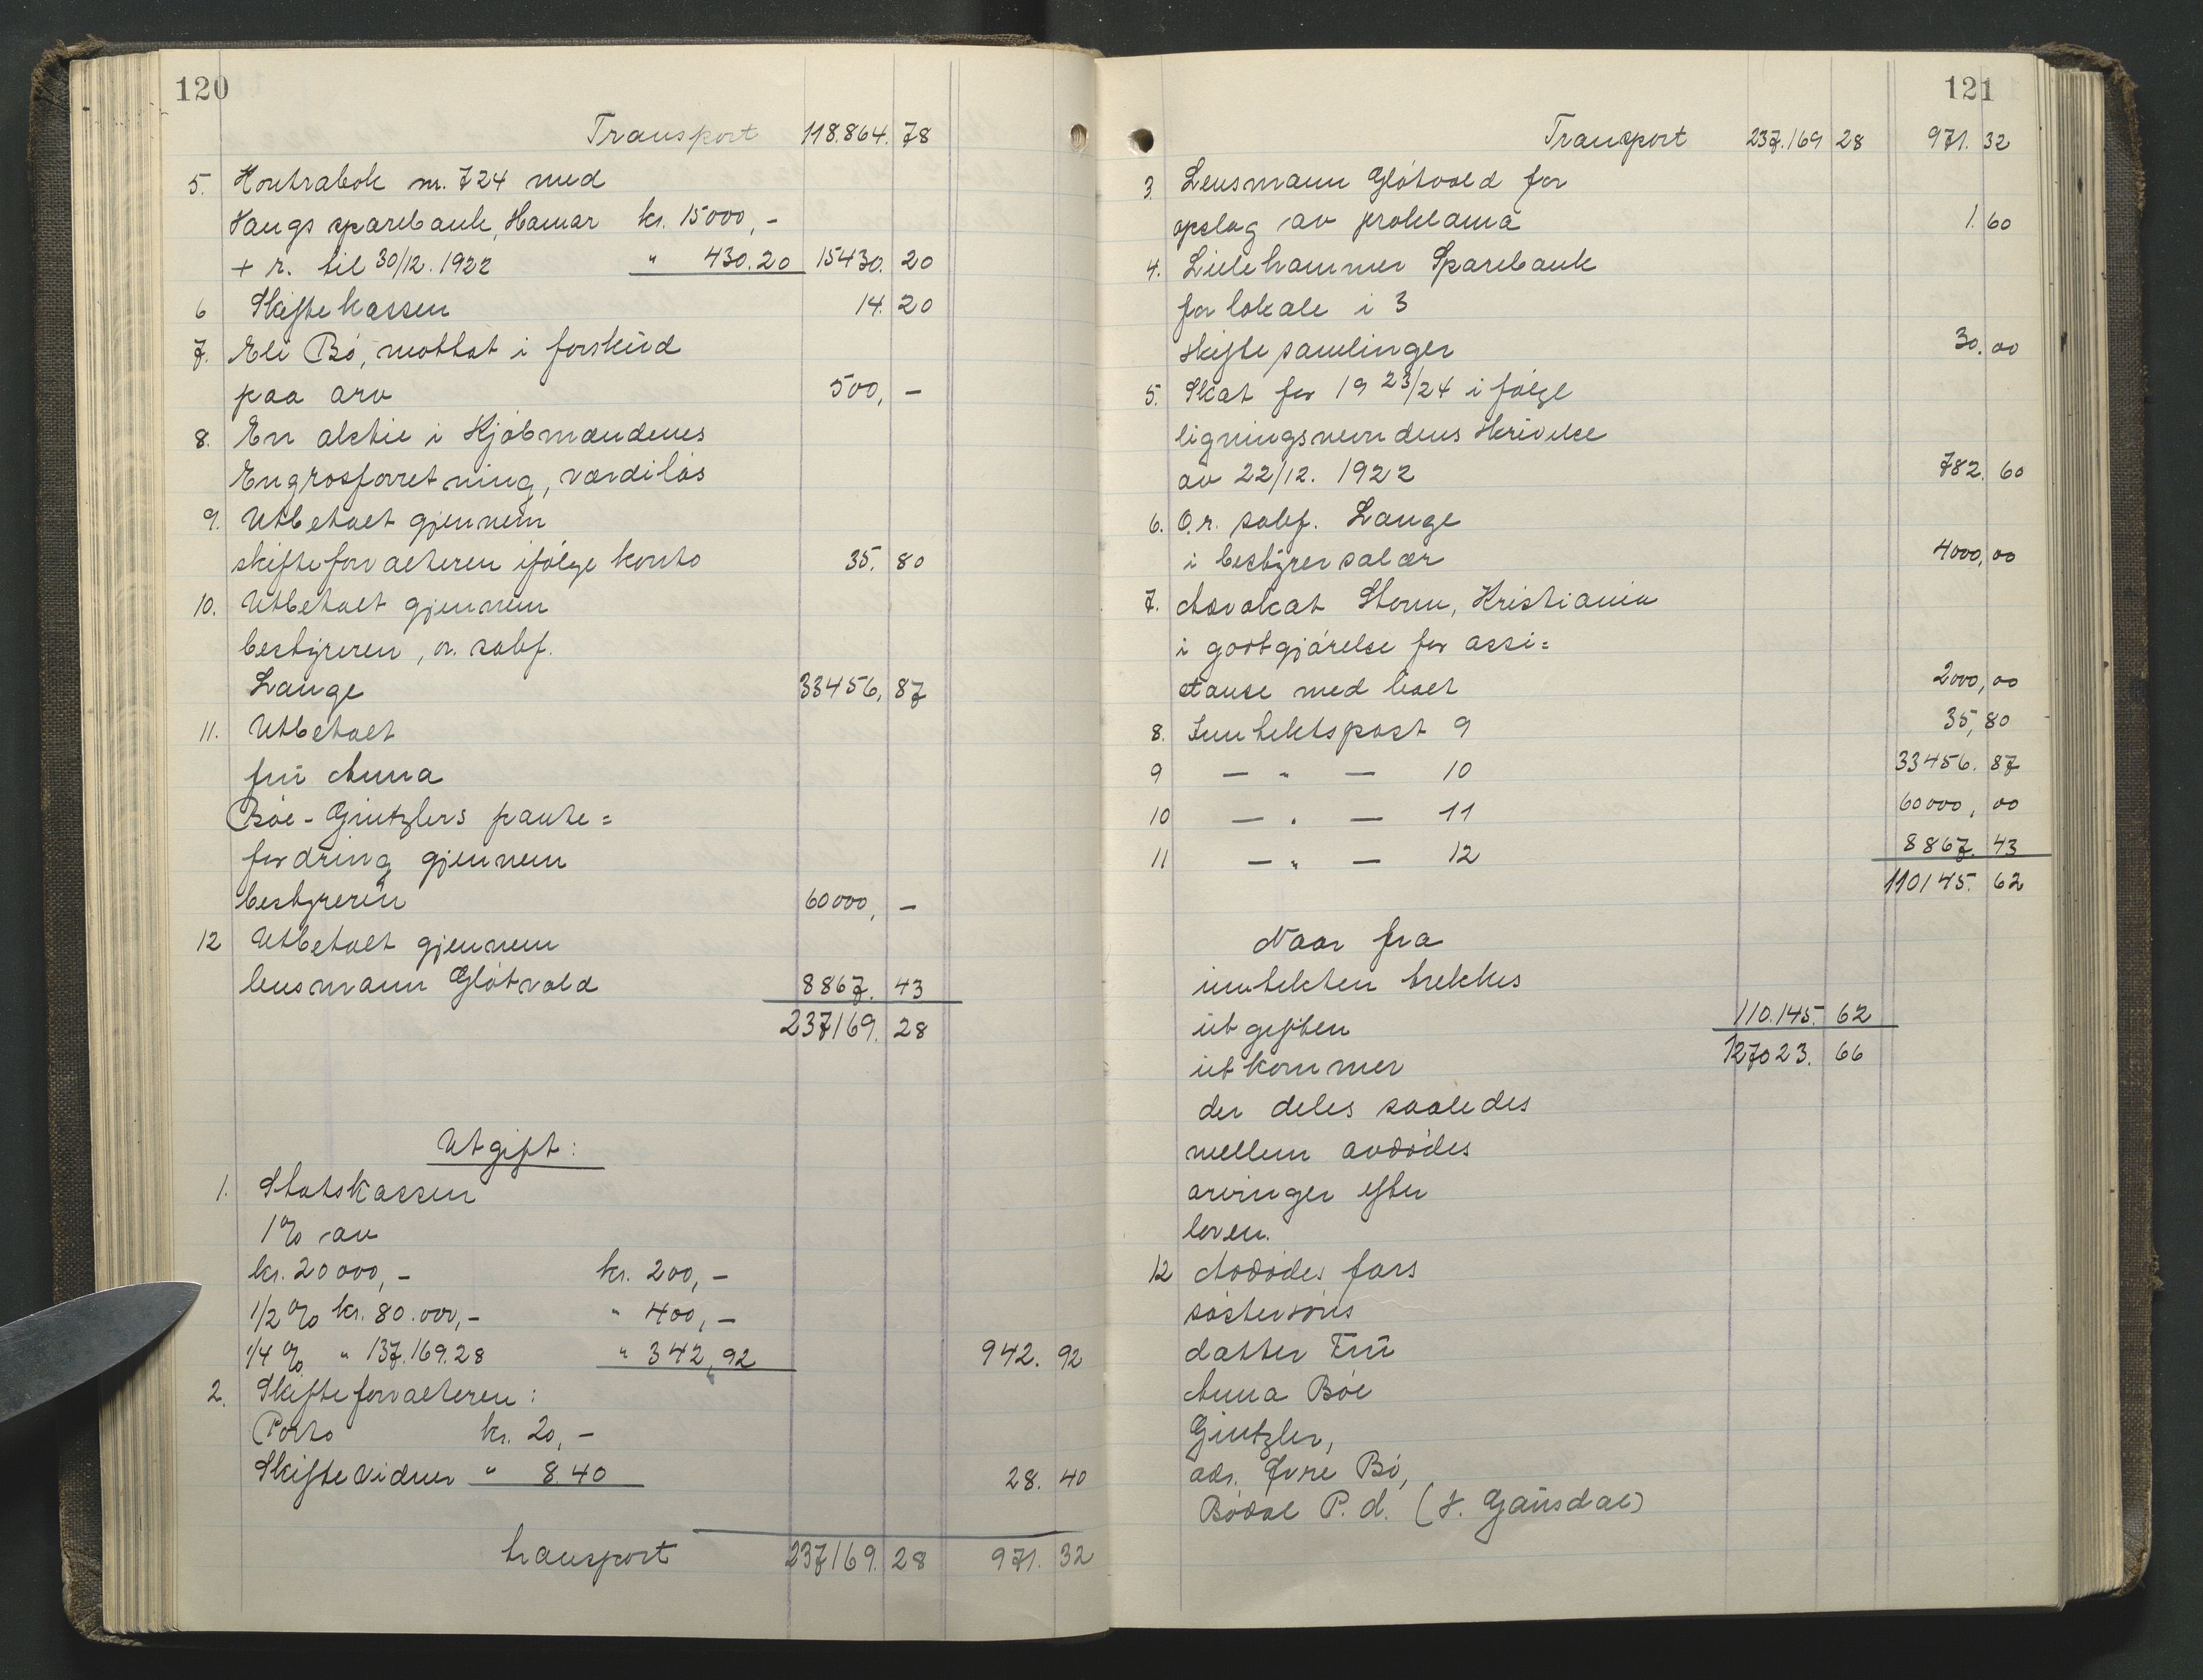 120
Transport 118.864. 78
5. Kontrabok nr. 724 med
Vangs sparebank, Hamar kr. 15000,-
+ r. til 30/12. 1922 " 430.20 15430. 20
6 Skiftekassen 14. 20
7. Eli Bö, mottat i forskud
paa arv 500, -
8. En aktie i Kjöbmændenes
Engrosforretning, værdilös
9. Utbetalt gjennem
skifteforvalteren ifölge konto 35. 80
10. Utbetalt gjennem
bestyreren, o. r. sakf.
Lange 33456, 87
11. Utbetalt
fru Anna
Böe-Gintzlers pante=
fordring gjennem
bestyreren 60000, -
12 Utbetalt gjennem
lensmann Glötvold 8867. 43
237169. 28
Utgift:
1. Statskassen
1% av
kr. 20000,- kr. 200,-
1/2% kr. 80.000,- " 400,-
1/4% " 137.169.28 " 342,92 942. 92
2. Skifteforvalteren:
Porto kr. 20,-
Skiftevidner " 8.40 28. 40
transport 237169. 28 971. 32
121
Transport 237.169 28 971. 32
3. Lensmann Glötvold for
opslag av proklama 1. 60
4. Lillehammer Sparebank
for lokale i 3
skiftesamlinger 30. 00
5. Skat for 1923/24 i fölge
ligningsnevndens skrivelse
av 22/12. 1922 782. 60
6. O.r. sakf. Lange
i bestyrersalær 4000,00
7. Advokat Storm, Kristiania
i godtgjörelse for assi=
stanse med boet 2000,00
8. Inntektspost 9 35,80
9 — " — 10 33456. 87
10 — " — 11 60000, 00
11 — " — 12 8867. 43
110145. 62
Naar fra
inntekten trekkes
utgiften 110.145. 62
utkommer 127023. 66
der deles saaledes
mellem avdödes
arvinger efter
loven.
12 Avdödes fars
söstersöns
datter Fru
Anna Böe
Gintzler,
adr. Övre Bö,
Bödal P. d. (V. Gausdal)